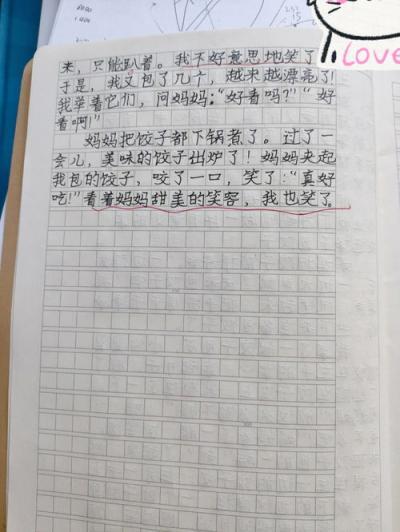 来，只能趴着。我不好意思地笑了。
于是，我又包了几个，越来越漂亮了！
我举着它们，问妈妈：“好看吗？”“好
看啊！”
妈妈把饺子都下锅煮了。过了一
会儿，美味的饺子出炉了！妈妈夹起
我包的饺子，咬了一口，笑了：“真好
吃！”看着妈妈甜美的笑容，我也笑了。
LOVE